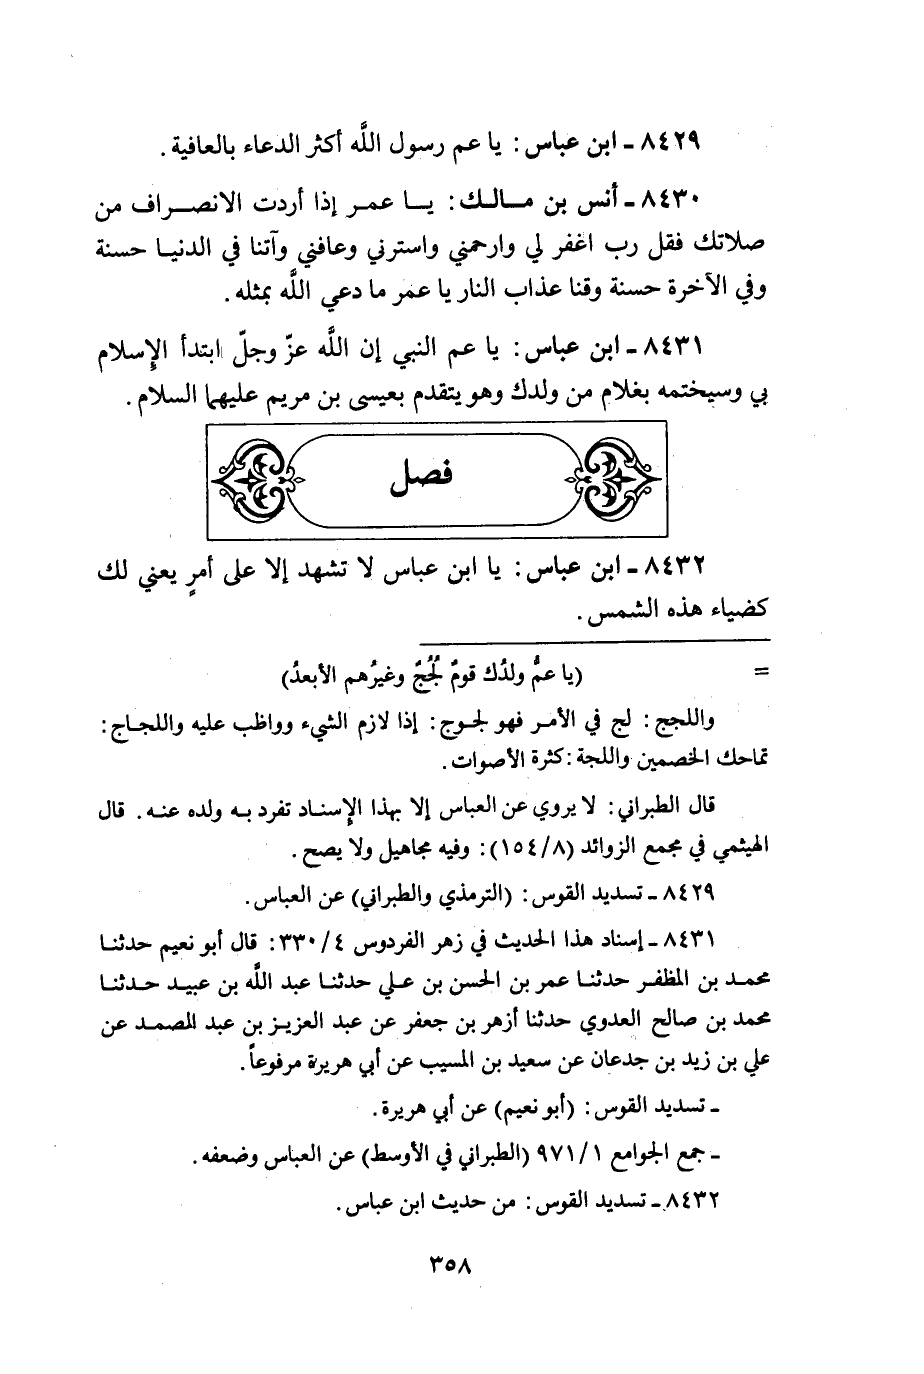 ٨٤٢٩ ـ ابن عباس : يا عم رسول اللَّه أكثر الدعاء بالعافية .
٨٤٣٠ ـ أنس بن مـالـك : يـا عمـر إذا أردت الانصـراف من
صلاتك فقل رب اغفر لي وارحمني واسترني وعافني وآتنا في الدنيـا حسنة
وفي الآخرة حسنة وقنا عذاب النار يا عمر ما دعي اللَّه بمثله .
٨٤٣١ ـ ابن عباس : يا عم النبي إن اللَّه عزّ وجلّ ابتدأ الإسلام
بي وسيختمه بغلام من ولدك وهو يتقدم بعيسى بن مريم عليهما السلام .
فصل
٨٤٣٢ ـ ابن عباس : يا ابن عباس لا تشهد إلا على أمرٍ يعني لك
كضياء هذه الشمس .
= (يا عمُّ ولدُك قومٌ لُجُجٌ وغيرُهم الأبعدُ)
واللجج : لج في الأمـر فهو لجـوج : إذا لازم الشيء وواظب عليه واللجـاج :
تماحك الخصمين واللجة : كثرة الأصوات .
قال الطبراني : لا يروي عن العباس إلا بهذا الإسنـاد تفرد بـه ولده عنـه . قال
الهيثمي في مجمع الزوائد (٨/ ١٥٤) : وفيه مجاهيل ولا يصح .
٨٤٢٩ ـ تسديد القوس : (الترمذي والطبراني) عن العباس .
٨٤٣١ ـ إسناد هذا الحديث في زهر الفردوس ٤/ ٣٣٠ : قال أبو نعيم حدثنـا
محمـد بن المظفـر حدثنـا عمر بن الحسن بن عـلي حدثنـا عبد اللَّه بن عبيـد حـدثنـا
محمد بن صالح العدوي حدثنا أزهر بن جعفر عن عبد العزيـز بن عبد الصمـد عن
علي بن زيد بن جدعان عن سعيد بن المسيب عن أبي هريرة مرفوعاً .
ـ تسديد القوس : (أبو نعيم) عن أبي هريرة .
ـ جمع الجوامع ١/ ٩٧١ (الطبراني في الأوسط) عن العباس وضعفه .
٨٤٣٢ ـ تسديد القوس : من حديث ابن عباس .
٣٥٨